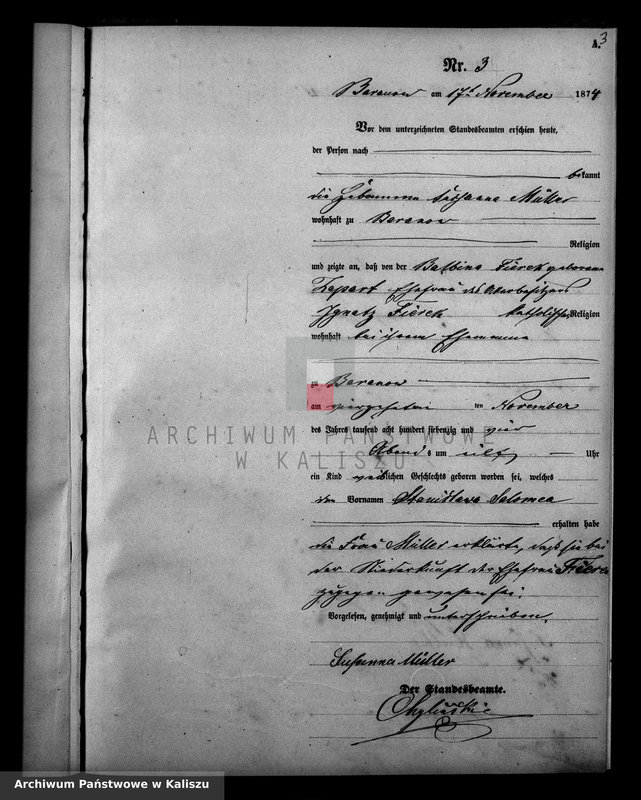 A. 3
Nr. 3
Baranow am 17t November 1874
Vor dem unterzeichneten Standesbeamten erschien heute,
der Person nach
bekannt
die Hebamme Susanna Müller
wohnhaft zu Baranow
Religion
und zeigte an, daß von der Balbina Fierek geborene
Ehefrau des Ackerbesitzers
Ignatz Fierek katholischer Religion
wohnhaft bei ihrem Ehemanne
zu Baranow
am vierzehnten ten November
des Jahres tausend acht hundert siebenzig und vier
Abends um elf Uhr
ein Kind weiblichen Geschlechts geboren worden sei, welches
den Vornamen Stanislawa Salomea
erhalten habe
die Frau Müller erklärte, daß sie bei
der Niederkunft der Ehefrau Fierek
zugegen gewesen sei.
Vorgelesen, genehmigt und unterschrieben.
Susanna Müller
Der Standesbeamte.
ARCHIWUM PAŃSTWOWE
W KALISZU
Archiwum Państwowe w Kaliszu